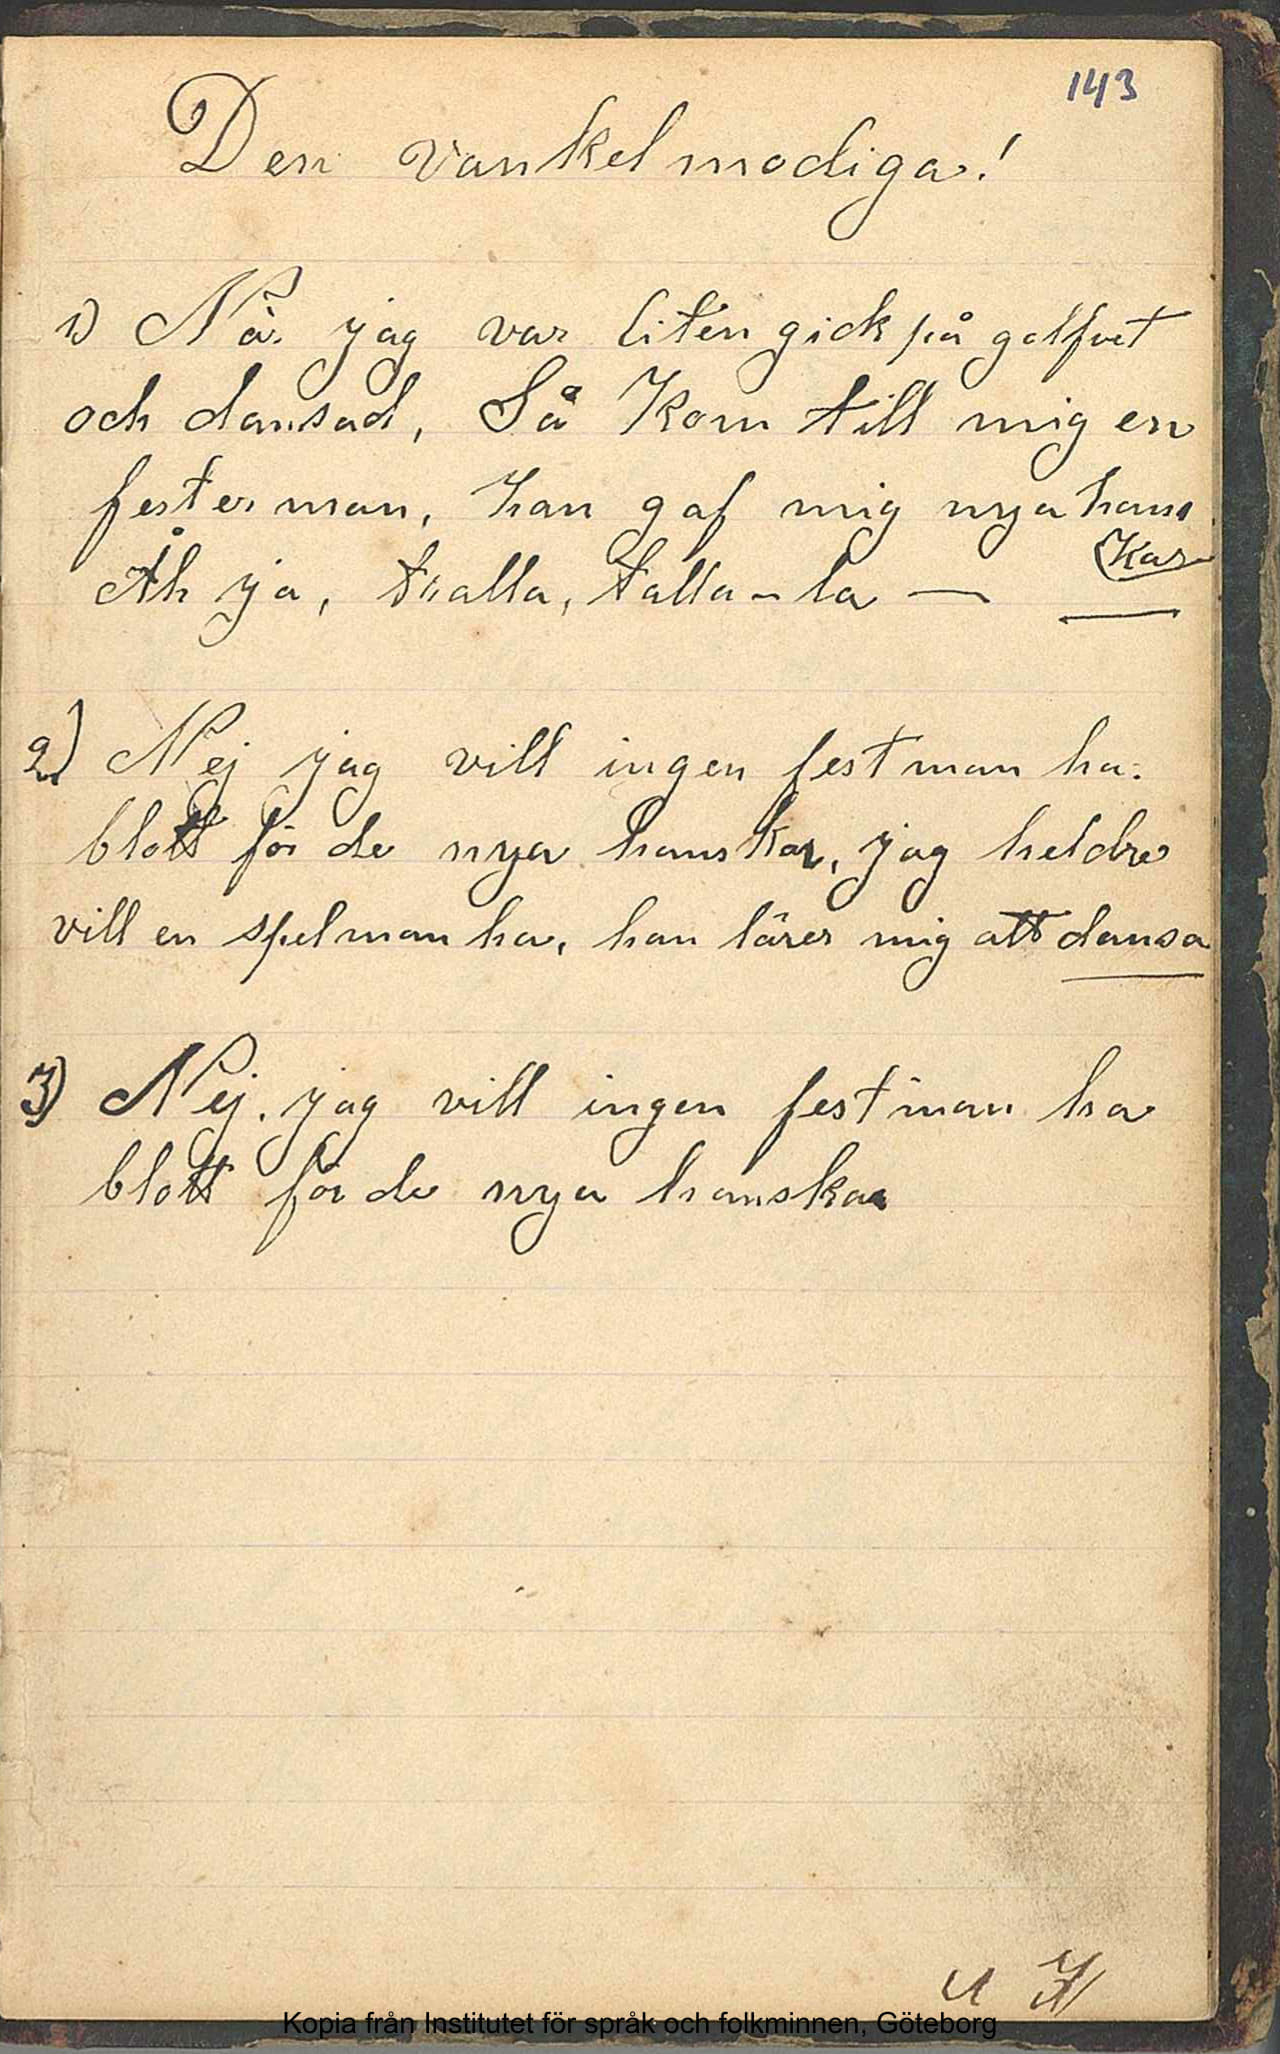 143
Den vankelmodiga!
1) När jag var liten gick på golfvet
och dansad, Så Kom till mig en
festerman, han gaf mig nya hans
kar
Åh ja, tralla, talla-la —
2) Nej jag vill ingen festman ha.
blott för de nya hanskar, jag heldre
vill en spelman ha, han lärer mig att dansa
3) Nej. jag vill ingen festman ha
blott för de nya hanskar
Kopia från Institutet för språk och folkminnen, Göteborg